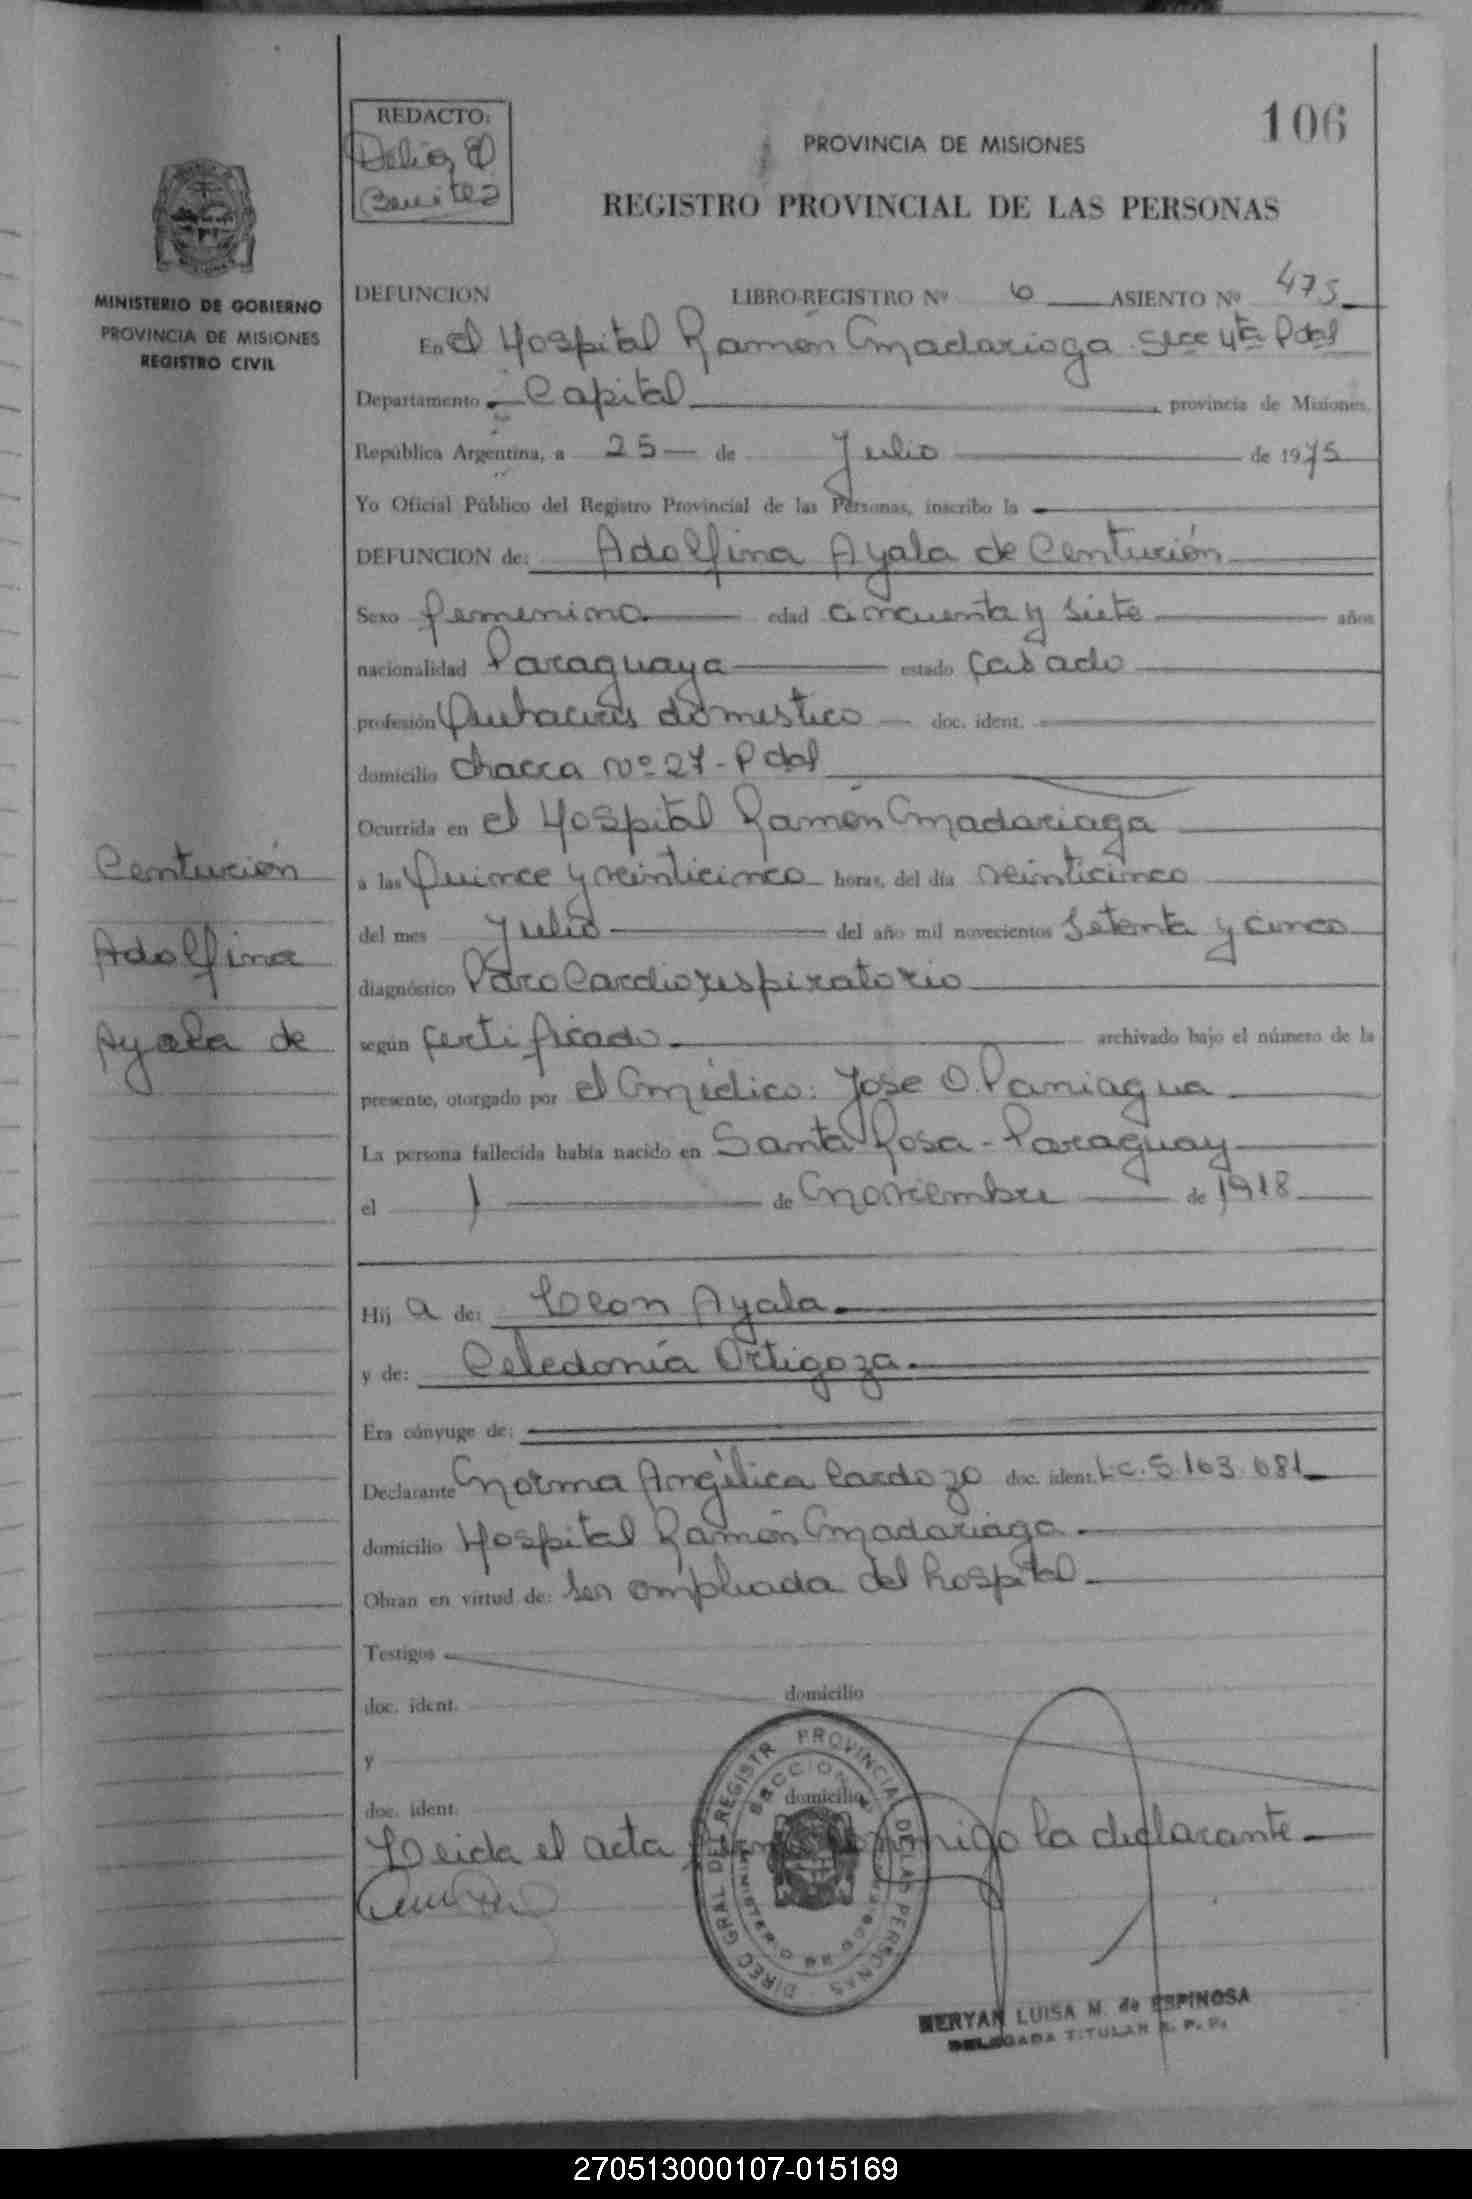 106
REDACTO:
Delia E
Benitez
PROVINCIA DE MISIONES
REGISTRO PROVINCIAL DE LAS PERSONAS
MINISTERIO DE GOBIERNO
PROVINCIA DE MISIONES
REGISTRO CIVIL
DEFUNCION LIBRO-REGISTRO Nº 6 ASIENTO Nº 475
En el Hospital Ramón Madariaga Secc 4ta Pdas
Departamento Capital provincia de Misiones,
República Argentina, a 25 de Julio de 1975
Yo Oficial Público del Registro Provincial de las Personas, inscribo la
DEFUNCION de: Adolfina Ayala de Centurión
Sexo femenino edad cincuenta y siete años
nacionalidad Paraguaya estado casado
profesión Quehaceres doméstico doc. ident.
domicilio chacra Nº 27-Pdas
Ocurrida en el Hospital Ramón Madariaga
a las Quince y veinticinco horas, del día veinticinco
del mes Julio del año mil novecientos setenta y cinco
diagnóstico Paro Cardiorespiratorio
según certificado archivado bajo el número de la
presente, otorgado por el Médico: Jose O. Paniagua
La persona fallecida había nacido en Santa Rosa - Paraguay
el 1 de Noviembre de 1918
Hij a de: Leon Ayala
y de: Celedonia Ortigoza
Era cónyuge de:
Declarante Norma Angélica Cardozo doc. ident. L.C. 5.163.681
domicilio Hospital Ramón Madariaga
Obran en virtud de: ser empleada del hospital
Testigos
doc. ident. domicilio
y
doc. ident. domicilio
Leida el acta firma conmigo la declarante
Centurión
Adolfina
Ayala de
DIREC GRAL DEL REGISTR PROVINCIAL DE LAS PERSONAS
SECCION
MINISTERIO DE GOBIERNO
MERYAN LUISA M. de ESPINOSA
DELEGADA TITULAR R. P. P.
270513000107-015169